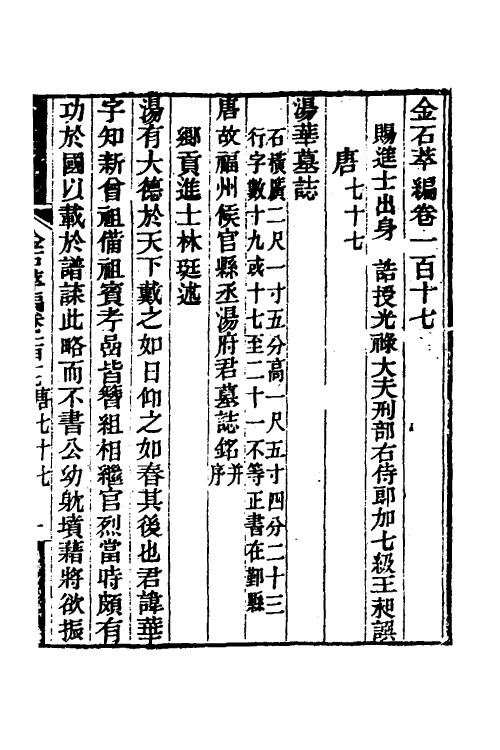 金石萃編卷一百十七
賜進士出身　誥授光祿大夫刑部右侍郎加七級王昶譔
唐七十七
湯華墓誌
石橫廣二尺一寸五分高一尺五寸四分二十三
行字數十九或十七至二十一不等正書在鄞縣
唐故福州候官縣丞湯府君墓誌銘并序
鄉貢進士林珽述
湯有大德於天下戴之如日仰之如春其後也君諱華
字知新曾祖備祖賓考嵒皆簪組相繼官烈當時頗有
功於國以載於譜諜此略而不書公幼躭墳藉將欲振
金石萃編卷一百十七唐七十七　一